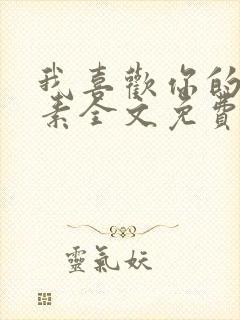 我喜歡你的
素全文免費
靈氣妖